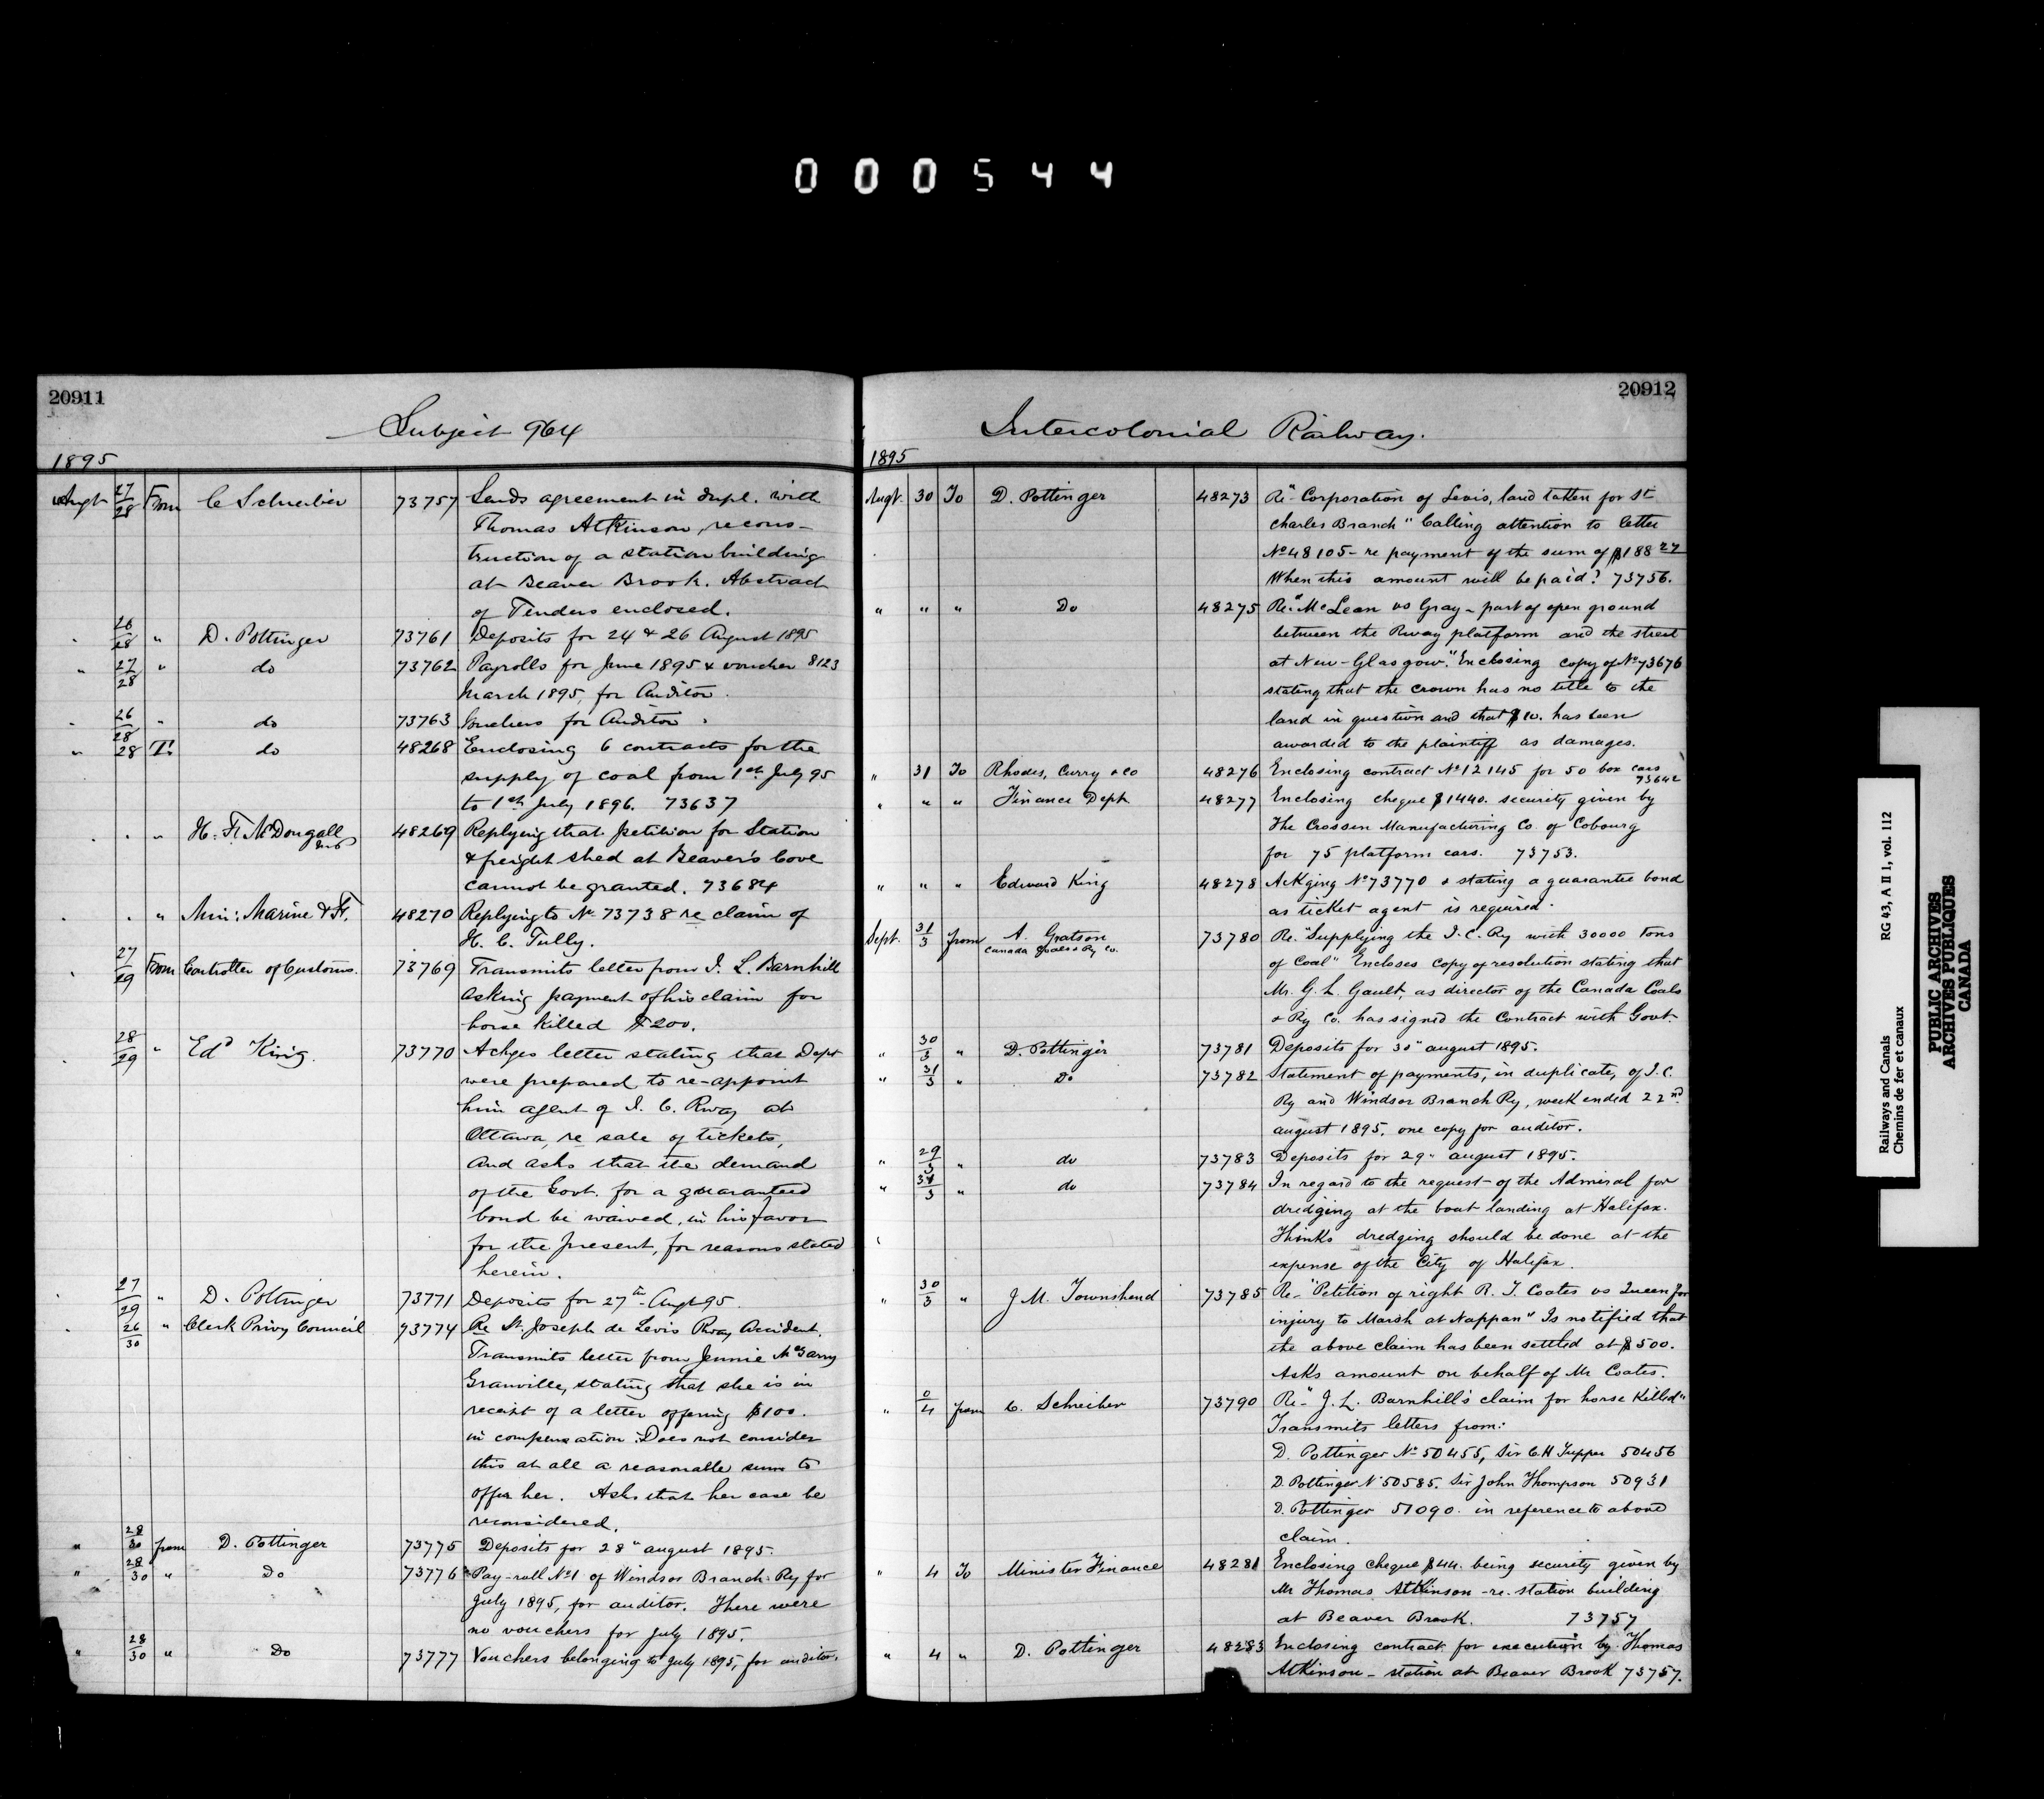 000544
20911
Subject 964
1895
Augt 27/28 From C Schreiber 73757 Sends agreement in dupl. with
Thomas Atkinson, re cons-
truction of a station building
at Beaver Brook. Abstract
of Tenders enclosed.
" 26/28 " D. Pottinger 73761 Deposits for 24 & 26 August 1895
" 27/28 " do 73762 Payrolls for June 1895 & voucher 8123
March 1895, for Auditor.
" 26/28 " do 73763 Vouchers for Auditor.
" 28 To do 48268 Enclosing 6 contracts for the
supply of coal from 1st July 95
to 1st July 1896. 73637
" " " H. F. McDougall 48269 Replying that petition for Station
& freight shed at Beaver's Cove
cannot be granted. 73684
" " " Min: Marine & F. 48270 Replying to No 73738 re claim of
H. C. Tully.
" 27/29 From Controller of Customs. 73769 Transmits letter from J. L. Barnhill
asking payment of his claim for
horse killed $200.
" 28/29 " Ed King. 73770 Ackges letter stating that Dept
were prepared to re-appoint
him agent of I. C. Rway at
Ottawa, re sale of tickets,
and asks that the demand
of the Govt. for a guaranteed
bond be waived, in his favor
for the present, for reasons stated
herein.
" 27/29 " D. Pottinger 73771 Deposits for 27th Augt 95.
" 26/30 " Clerk Privy Council 73774 Re St. Joseph de Levis Rway Accident.
Transmits letter from Jennie McGarry
Granville, stating that she is in
receipt of a letter offering $100.
in compensation. Does not consider
this at all a reasonable sum to
offer her. Asks that her case be
reconsidered.
" 28/30 from D. Pottinger 73775 Deposits for 28" august 1895.
" 28/30 " Do 73776 Pay-roll No 1 of Windsor Branch Ry for
July 1895, for auditor. There were
no vouchers for July 1895.
" 28/30 " Do 73777 Vouchers belonging to July 1895, for auditor.
20912
Intercolonial Railway.
1895
Augt. 30 To D. Pottinger 48273 Re "Corporation of Levis, land taken for St
Charles Branch" Calling attention to letter
No 48105 - re payment of the sum of $188 27
When this amount will be paid? 73756.
" " " Do 48275 Re. "McLean vs Gray - part of open ground
between the Rway platform and the street
at New-Glasgow." Enclosing copy of No 73676
stating that the crown has no title to the
land in question and that $10. has been
awarded to the plaintiff as damages.
" 31 To Rhodes, Curry & Co 48276 Enclosing contract No 12145 for 50 box cars
73642
" " " Finance Dept. 48277 Enclosing cheque $1440. security given by
The Crossen Manufacturing Co. of Cobourg
for 75 platform cars. 73753.
" " " Edward King 48278 Ackging No 73770 & stating a guarantee bond
as ticket agent is required.
Sept. 31/3 from A. Gratson 73780 Re. "Supplying the I. C. Ry with 30000 tons
Canada Coals & Ry Co.
of Coal" Encloses copy of resolution stating that
Mr. G. L. Gault, as director of the Canada Coals
& Ry Co. has signed the Contract with Govt.
" 30/3 " D. Pottinger 73781 Deposits for 30" august 1895.
" 31/3 " Do 73782 Statement of payments, in duplicate, of I. C.
Ry and Windsor Branch Ry, week ended 22nd.
august 1895, one copy for auditor.
" 29/3 " do 73783 Deposits for 29" august 1895.
" 31/3 " do 73784 In regard to the request of the Admiral for
dredging at the boat landing at Halifax.
Thinks dredging should be done at the
expense of the City of Halifax.
" 30/3 " J M. Townshend 73785 Re- "Petition of right R. T. Coates vs Queen for
injury to Marsh at Nappan" Is notified that
the above claim has been settled at $500.
Asks amount on behalf of Mr Coates.
" 0/4 from C. Schreiber 73790 Re- "J. L. Barnhill's claim for horse killed"
Transmits letters from:
D. Pottinger No 50455, Sir C. H Tupper 50456
D. Pottinger N 50585. Sir John Thompson 50931
D. Pottinger 51090. in reference to above
claim.
" 4 To Minister Finance 48281 Enclosing cheque $44. being security given by
Mr Thomas Atkinson - re. station building
at Beaver Brook. 73757
" 4 " D. Pottinger 48283 Enclosing contract for execution by Thomas
Atkinson - station at Beaver Brook 73757.
Railways and Canals RG 43, A II 1, vol. 112
Chemins de fer et canaux
PUBLIC ARCHIVES
ARCHIVES PUBLIQUES
CANADA